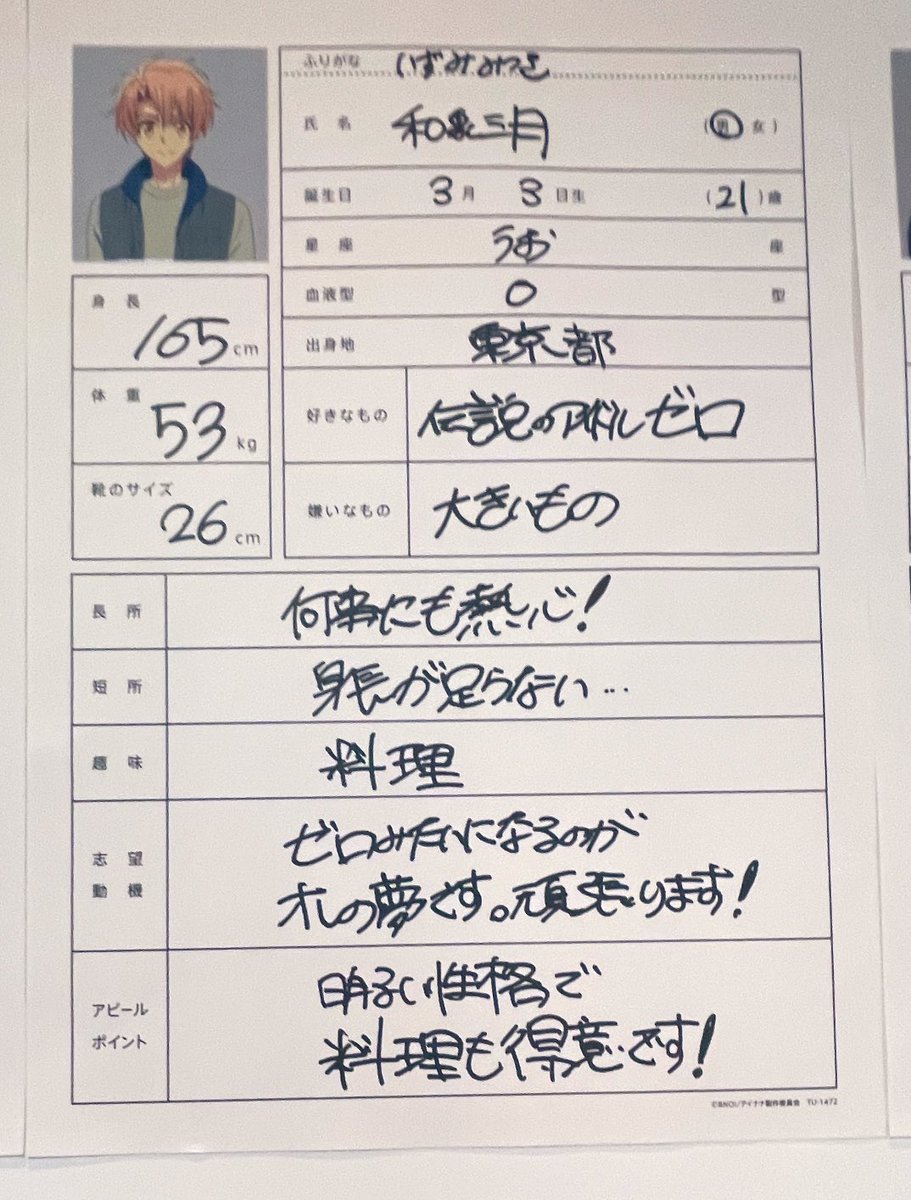 ふりがな いずみみつき
氏名 和泉三月 (男 女)
誕生日 3月 3日生 (21)歳
星座 うお 座
血液型 O 型
出身地 東京都
好きなもの 伝説のアイドルゼロ
嫌いなもの 大きいもの
身長 165cm
体重 53kg
靴のサイズ 26cm
長所 何事にも熱心!
短所 身長が足らない…
趣味 料理
志望
動機
ゼロみたいになるのが
オレの夢です。頑張ります!
アピール
ポイント
明るい性格で
料理も得意です!
©BNOI/アイナナ製作委員会 TU-1472